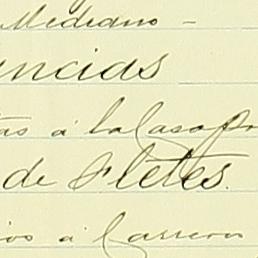 Mediano -
ncias
tas á la Casa Pr
de Fletes.
ios á Carrera